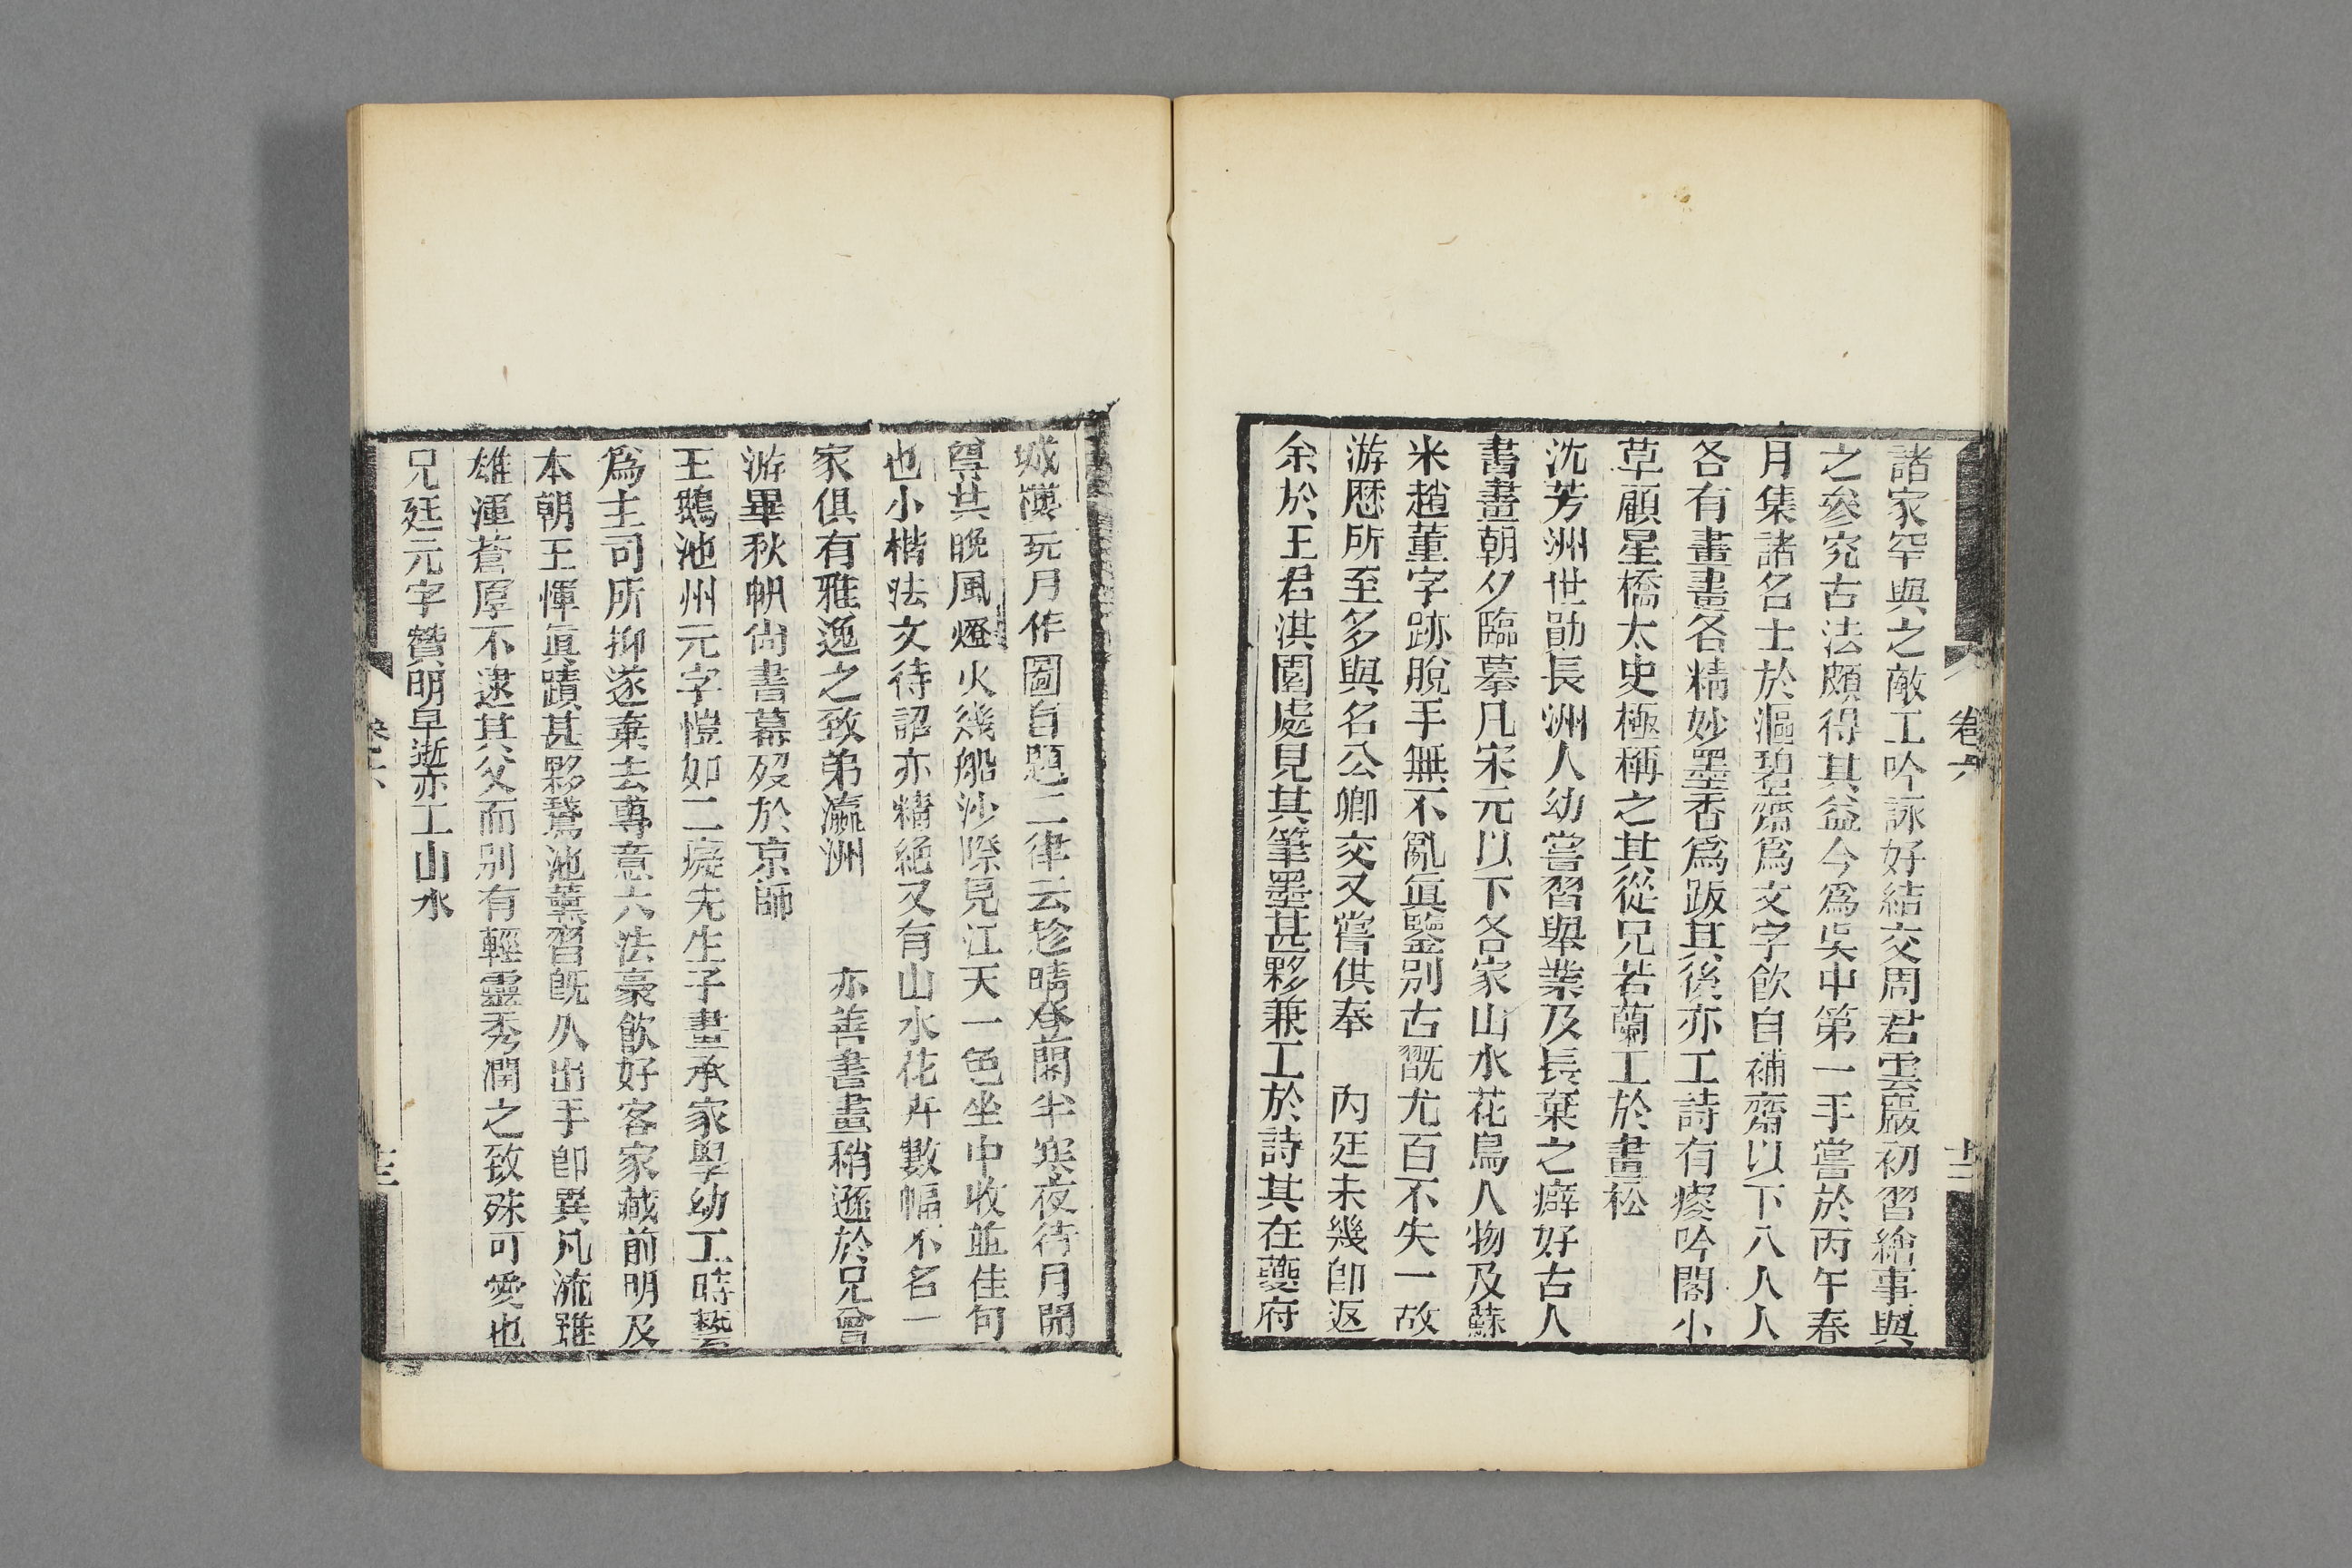 諸家罕與之敵工吟詠好結交周君雲巖初習繪事與
之參究古法頗得其益今爲吳中第一手嘗於丙午春
月集諸名士於漚碧齋爲文字飮自補齋以下八人人
各有畫畫各精妙墨香爲跋其後亦工詩有瘦吟閣小
草顧星橋太史極稱之其從兄若蘭工於畫松
沈芳洲世勛長洲人幼嘗習舉業及長棄之癖好古人
書畫朝夕臨摹凡宋元以下各家山水花鳥人物及蘇
米趙董字跡脫手無不亂眞鑒別古翫尤百不失一故
游歷所至多與名公卿交又嘗供奉 內廷未幾卽返
余於王君淇園處見其筆墨甚夥兼工於詩其在夔府
卷六
城樓玩月作圖自題二律云趁晴登閣半寒夜待月開
尊其晚風燈火幾船沙際見江天一色坐中收並佳句
也小楷法文待詔亦精絕又有山水花卉數幅不名一
家俱有雅逸之致弟瀛洲 亦善書畫稍遜於兄曾
游畢秋帆尙書幕歿於京師
王鵝池州元字愷如二癡先生子畫承家學幼工時藝
爲主司所抑遂棄去專意六法豪飮好客家藏前明及
本朝王惲眞蹟甚夥鵞池薰習旣久出手卽異凡流雖
雄渾蒼厚不逮其父而別有輕靈秀潤之致殊可愛也
兄廷元字贊明早逝亦工山水
卷六